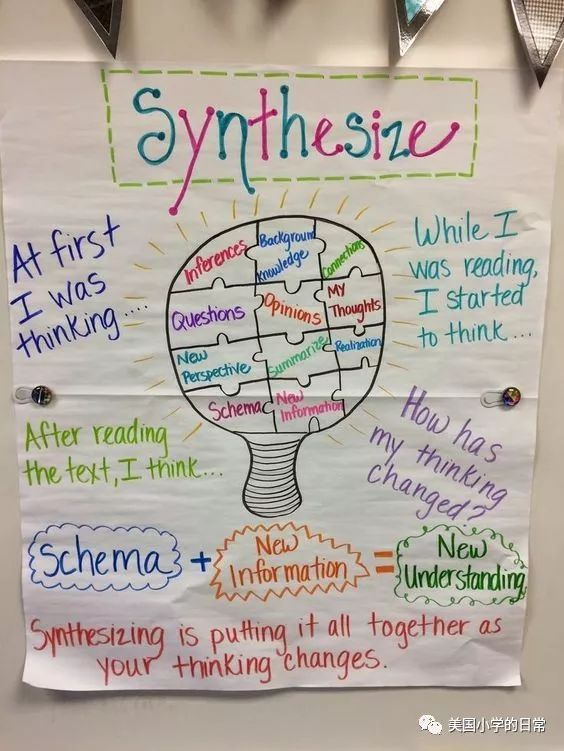 Synthesize
At first
I was
thinking....
While I
was reading,
I started
to think...
Inferences
Background
Knowledge
Connections
Questions
Opinions
My
Thoughts
New
Perspective
Summarize
Realization
Schema
New
Information
After reading
the text, I think...
How has
my thinking
changed?
Schema + New Information = New Understanding
Synthesizing is putting it all together as
your thinking changes.
美国小学的日常